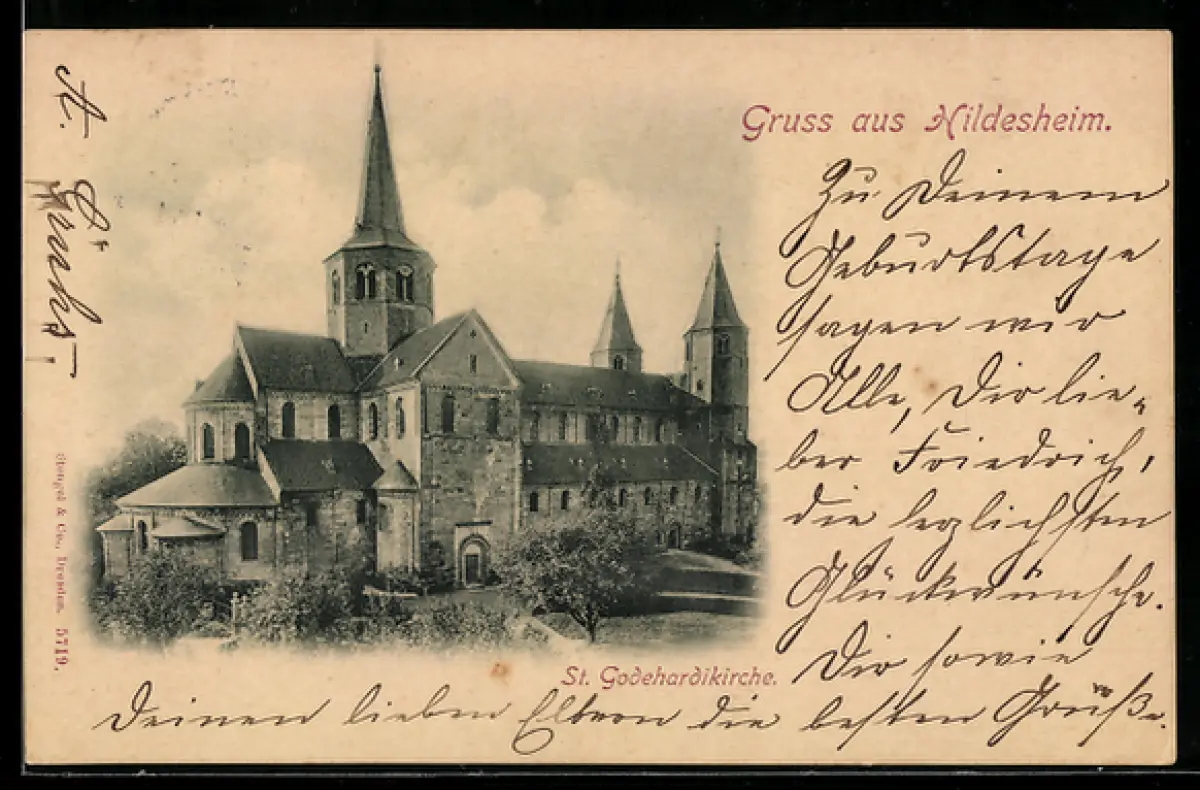 Gruss aus Hildesheim.
Zu Deinem
Geburtstage
sagen wir
Alle, Dir lie-
ber Friedrich,
die herzlichsten
Glückwünsche.
Dir sowie
Deinen lieben Eltern die besten Grüße.
St. Godehardikirche.
Stengel & Co., Dresden. 5719.
A.